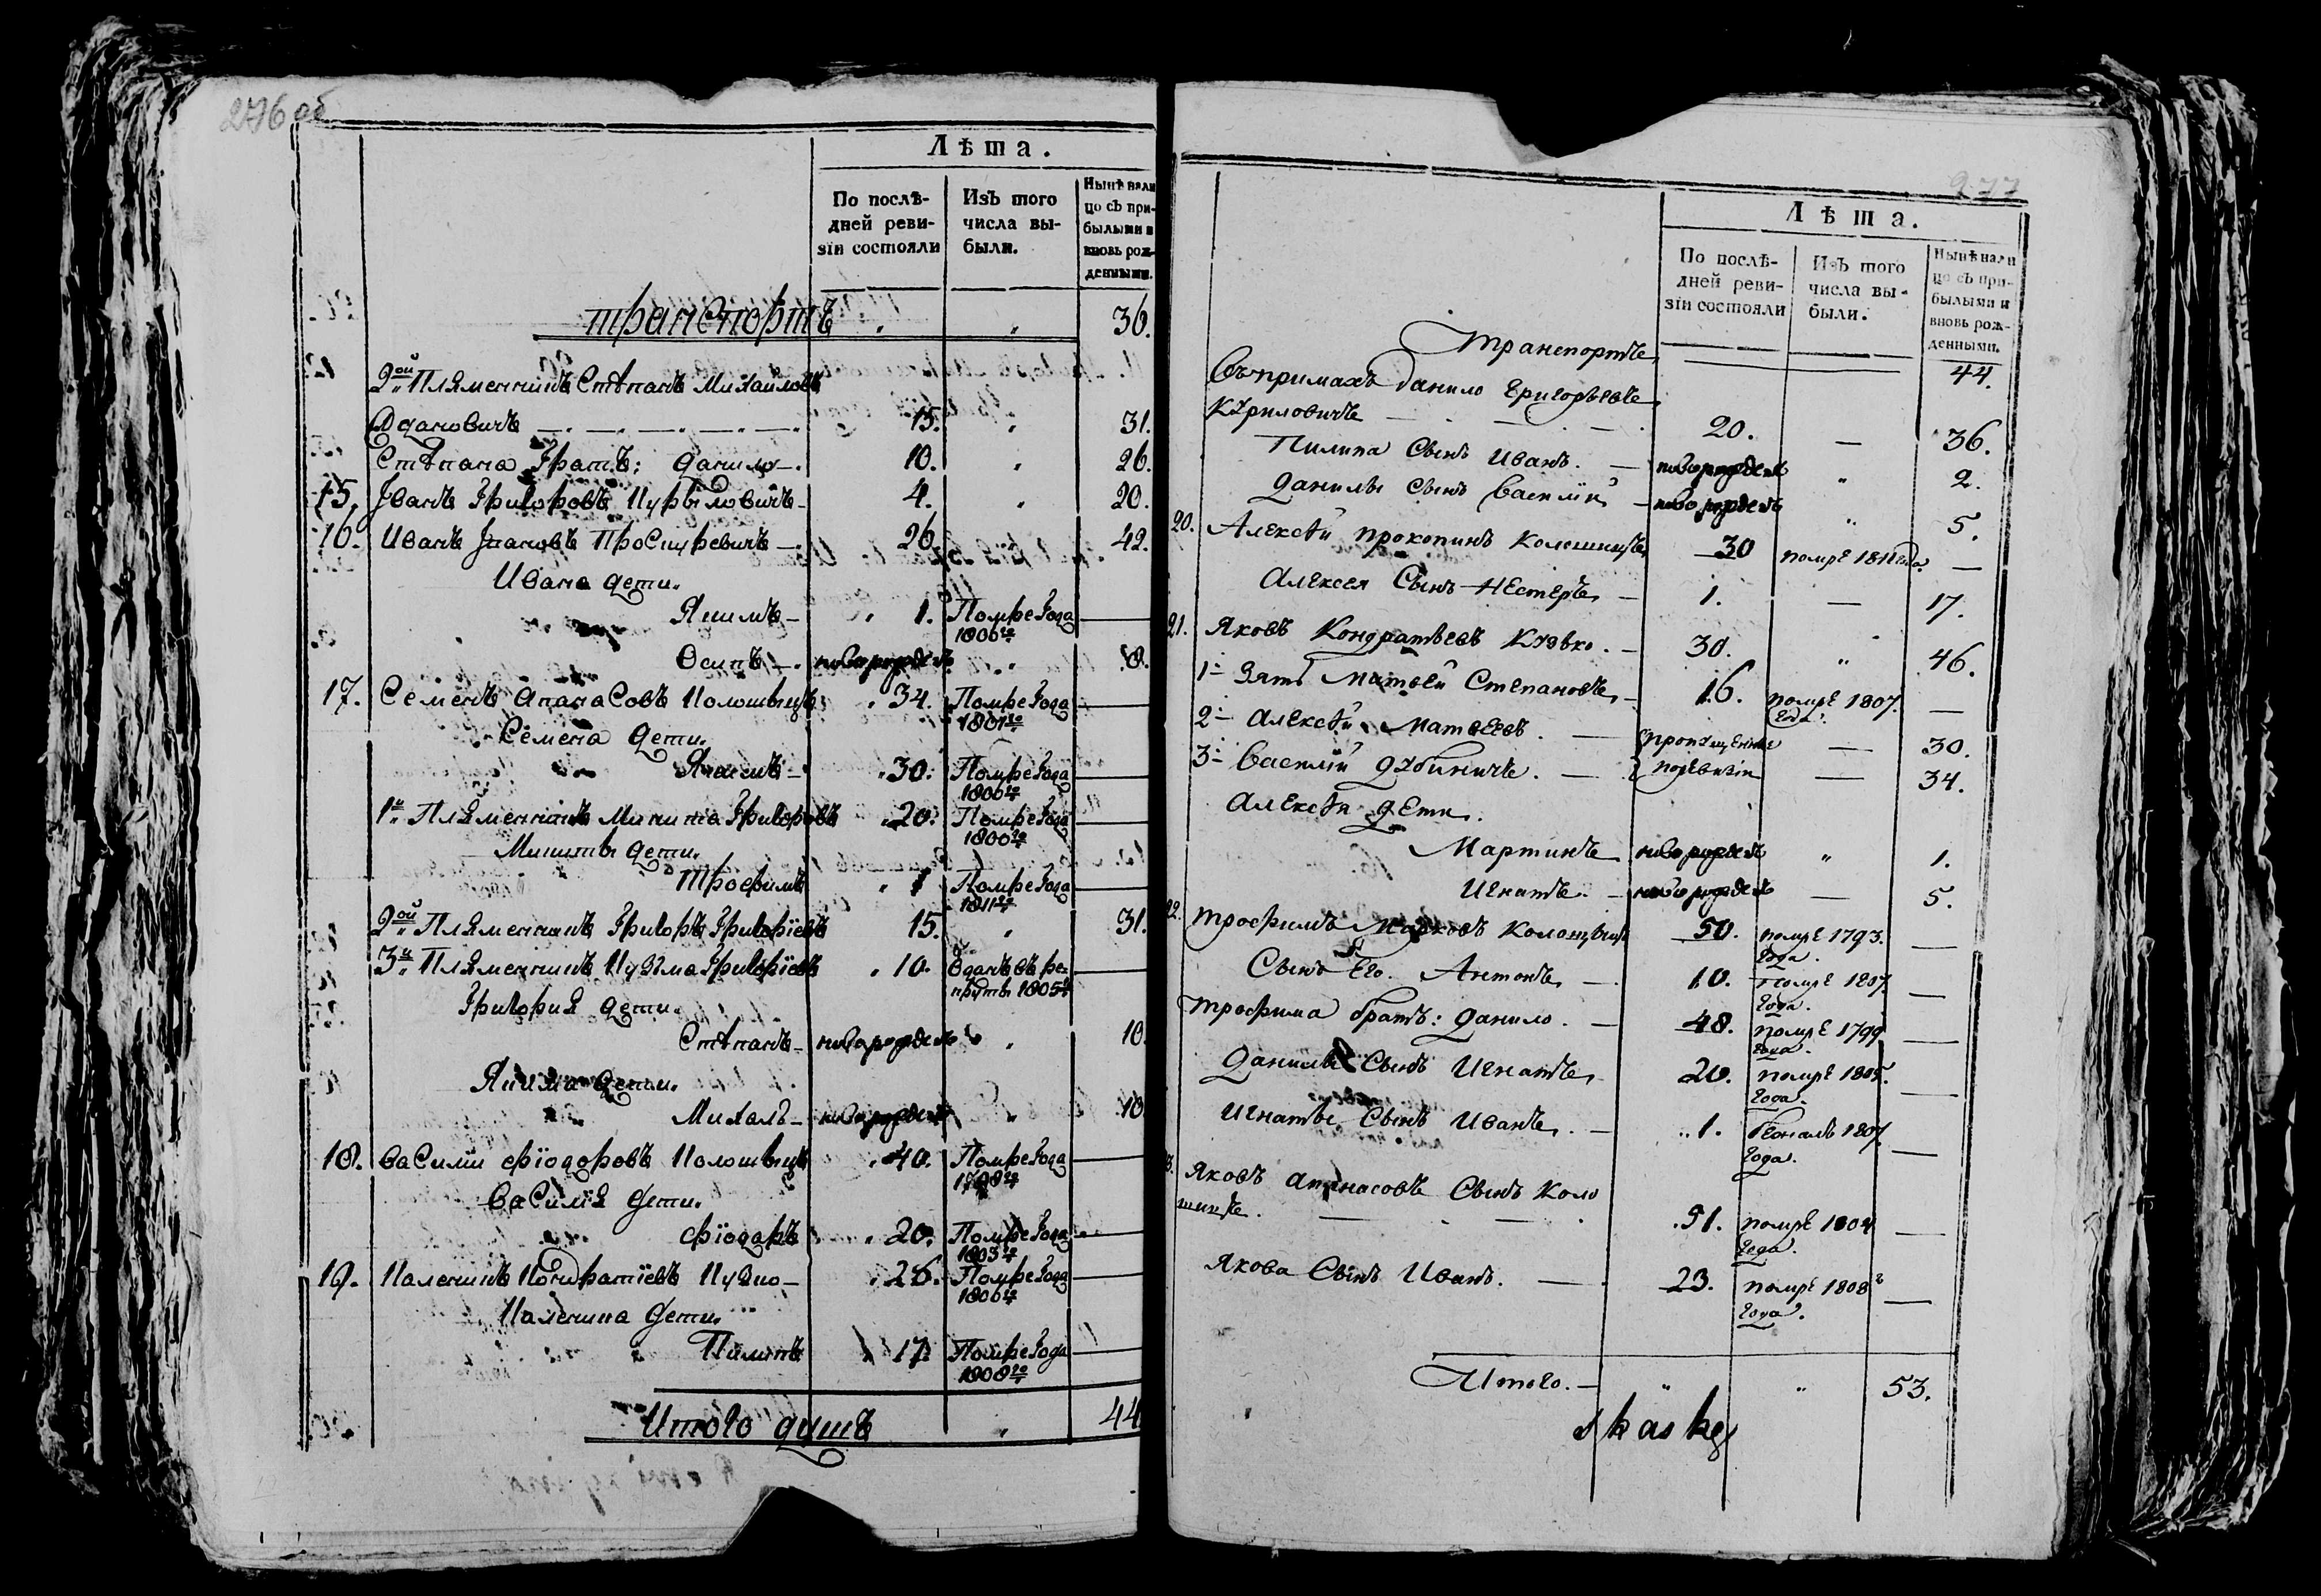 276 об
Лѣта.
По послѣ-
дней реви-
зіи состояли
Изъ того
числа вы-
были.
Нынѣ нали
цо съ при-
былыми и
вновь рож-
денными.
транспортъ " " 36.
2ой Пляменникъ Стѣпанъ Михайловъ
Адамовичъ 15. " 31.
Стѣпана Братъ: Данило 10. " 26.
15. Иванъ Григоровъ Курыловичъ 4. " 20.
16. Иванъ Проскуревичъ 26. 42.
Ивана дети.
Якимъ 1. Помре Года
1806го
Осипъ новорожденъ " 8.
17. Семенъ Апанасовъ Колошыцъ 34. Помре Года
1801го
Семена дети.
30. Помре Года
1806го
1й Пляменникъ Микита Григоровъ 20. Помре Года
1800го
Микиты дети.
Трофимъ 1 Помре Года
1811го
2ой Пляменникъ Григоръ Григоріевъ 15. " 31.
3й Пляменникъ Кузьма Григоріевъ 10. Оданъ въ ре-
круты 1805го
Григория дети.
Стѣпанъ новорожденъ " 10.
Якима дети.
Михалъ новорожденъ " 10
18. Василіи Фіодоровъ Колошыцъ 40. Помре Года
1798го
Василія дети.
Фіодаръ 20. Помре Года
1803го
19. Каленикъ Кондратіевъ Кузко 26. Помре Года
1806го
Каленика дети.
Пилипъ 17. Помре Года
1808го
Итого душъ " 44
277
Лѣта.
По послѣ-
дней реви-
зіи состояли
Изъ того
числа вы-
были.
Нынѣ нали
цо съ при-
былыми и
вновь рож-
денными.
Транспортъ 44.
Въ примахъ Данило Григорьевъ
Куриловичъ 20. — 36.
Пилипа Сынъ Иванъ. новорожденъ " 2.
Данилы Сынъ Василій новорожденъ " 5.
20. Алексѣй Прокопинъ Колошицъ 30 помре 1811 года. —
Алексея Сынъ Нестеръ 1. — 17.
21. Яковъ Кондратьевъ Кузько. 30. " 46.
1й Зять Матвѣй Степановъ 16. помре 1807. —
Года.
2й Алексѣй Матвеевъ. пропущенные — 30.
3й Василій Дубиничъ. по ревизіи — 34.
Алексѣя дети.
Мартинъ новорожденъ " 1.
Игнатъ. новорожденъ — 5.
22. Трофимъ Марковъ Колошицъ 50. помре 1793. —
Года.
Сынъ Его. Антонъ 10. помре 1807. —
Года.
Трофима братъ: Данило. 48. помре 1799 —
Года.
Данилы Сынъ Игнатъ 20. помре 1805. —
Года.
Игнаты Сынъ Иванъ. 1. 1807. —
Года.
3. Яковъ Апанасовъ Сынъ Коло
шицъ. 51. помре 1804 —
Года.
Якова Сынъ Иванъ. 23. помре 1808 —
Года.
Итого. " " 53.
skasky